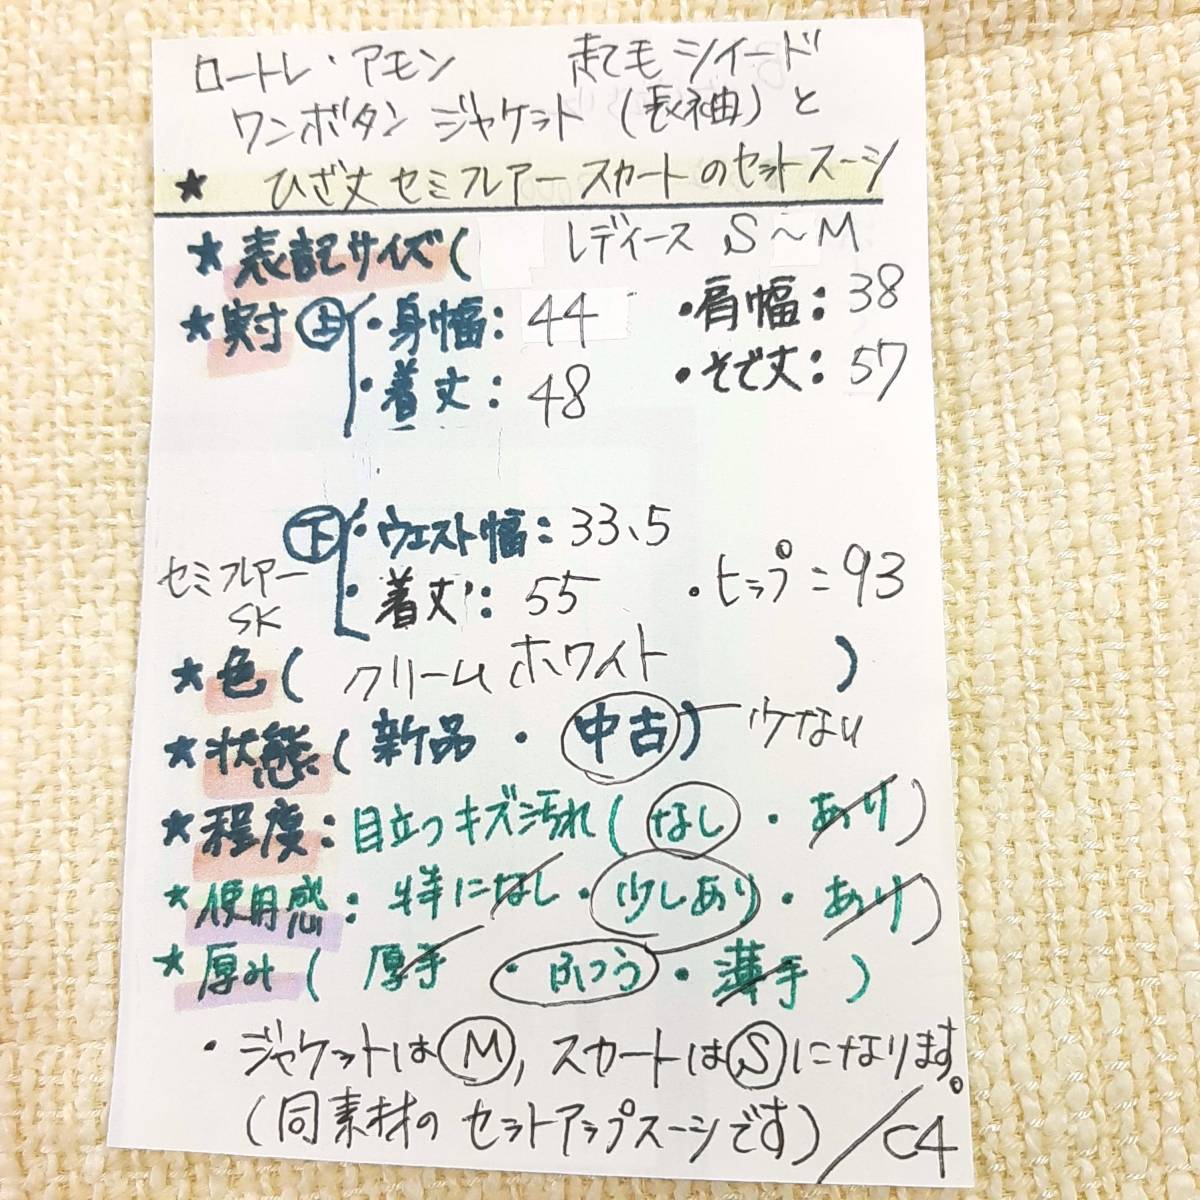 ロートレ・アモン 起毛ツイード
ワンボタン ジャケット（長袖）と
★ ひざ丈 セミフレアー スカートのセットスーツ
★表記サイズ( レディース S～M
★実寸 上 ・身幅：44 ・肩幅：38
・着丈：48 ・そで丈：57
下 ・ウエスト幅：33.5
セミフレアー ・着丈：55 ・ヒップ：93
SK
★色( クリームホワイト )
★状態( 新品 ・ 中古 ) 少なり
★程度：目立つキズ汚れ( なし ・ あり )
★使用感：特になし・少しあり・あり)
★厚み( 厚手 ・ ふつう ・ 薄手 )
・ジャケットはM, スカートはSになります。
(同素材のセットアップスーツです) /C4